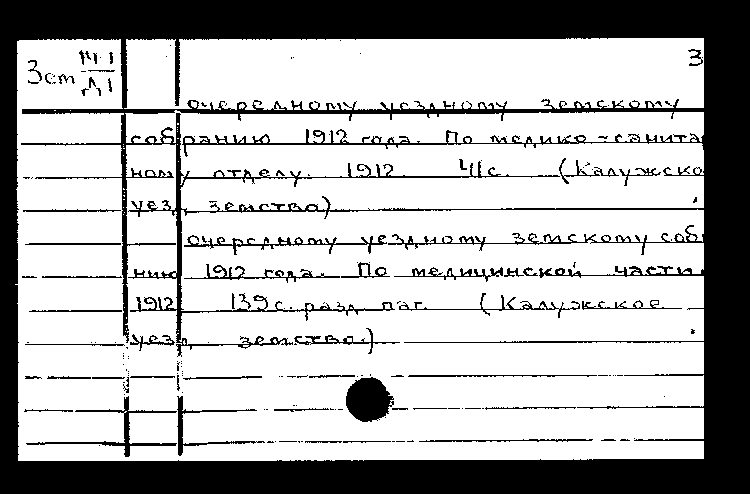 3
Зет
очередному уездному земскому
собранию 1912 года. По медико-санитар
ному отделу. 1912. 41с. (Калужско
уезд. земство)
очередному уездному земскому соб
нию 1912 года. По медицинской части.
1912 139с. разд. паг. (Калужское
уезд. земство.)